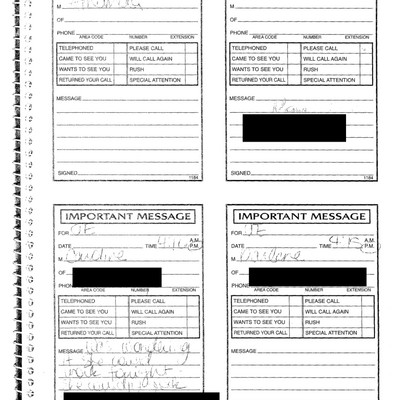 M
OF
PHONE
AREA CODE NUMBER EXTENSION
TELEPHONED PLEASE CALL
CAME TO SEE YOU WILL CALL AGAIN
WANTS TO SEE YOU RUSH
RETURNED YOUR CALL SPECIAL ATTENTION
MESSAGE
SIGNED
1184
M
OF
PHONE
AREA CODE NUMBER EXTENSION
TELEPHONED PLEASE CALL
CAME TO SEE YOU WILL CALL AGAIN
WANTS TO SEE YOU RUSH
RETURNED YOUR CALL SPECIAL ATTENTION
MESSAGE
SIGNED
1184
IMPORTANT MESSAGE
FOR JE
DATE TIME A.M. P.M.
M
OF
AREA CODE NUMBER EXTENSION
TELEPHONED PLEASE CALL
CAME TO SEE YOU WILL CALL AGAIN
WANTS TO SEE YOU RUSH
RETURNED YOUR CALL SPECIAL ATTENTION
MESSAGE
IMPORTANT MESSAGE
FOR JE
DATE TIME 4:15 A.M. P.M.
M
OF
AREA CODE NUMBER EXTENSION
TELEPHONED PLEASE CALL
CAME TO SEE YOU WILL CALL AGAIN
WANTS TO SEE YOU RUSH
RETURNED YOUR CALL SPECIAL ATTENTION
MESSAGE